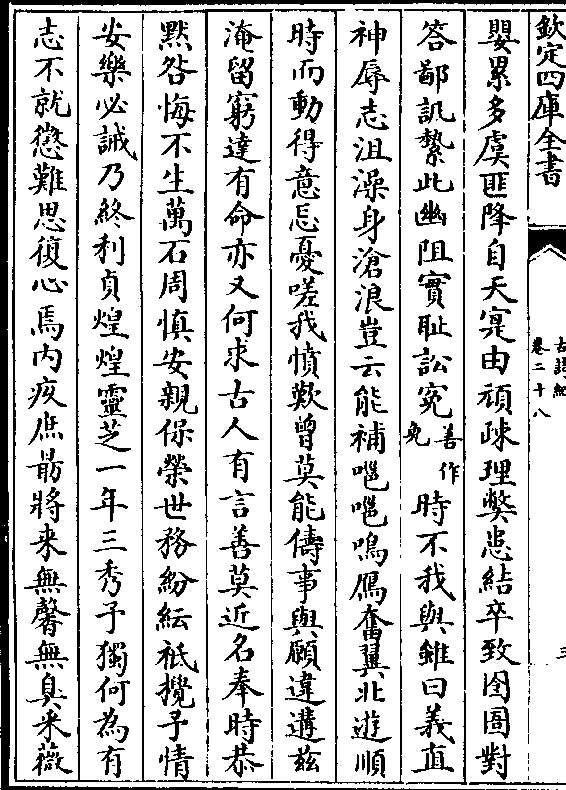 欽定四庫全書
古詩紀
卷二十八
三
嬰累多虞匪降自天寔由頑疎理弊患結卒致囹圄對
答鄙訊縶此幽阻實恥訟寃善作免時不我與雖曰義直
神辱志沮澡身滄浪豈云能補嗈嗈鳴鴈奮翼北遊順
時而動得意忘憂嗟我憤歎曾莫能儔事與願違遘兹
淹留窮達有命亦又何求古人有言善莫近名奉時恭
默咎悔不生萬石周慎安親保榮世務紛紜祇攪予情
安樂必誡乃終利貞煌煌靈芝一年三秀予獨何為有
志不就懲難思復心焉内疚庶勗將来無馨無臭采薇